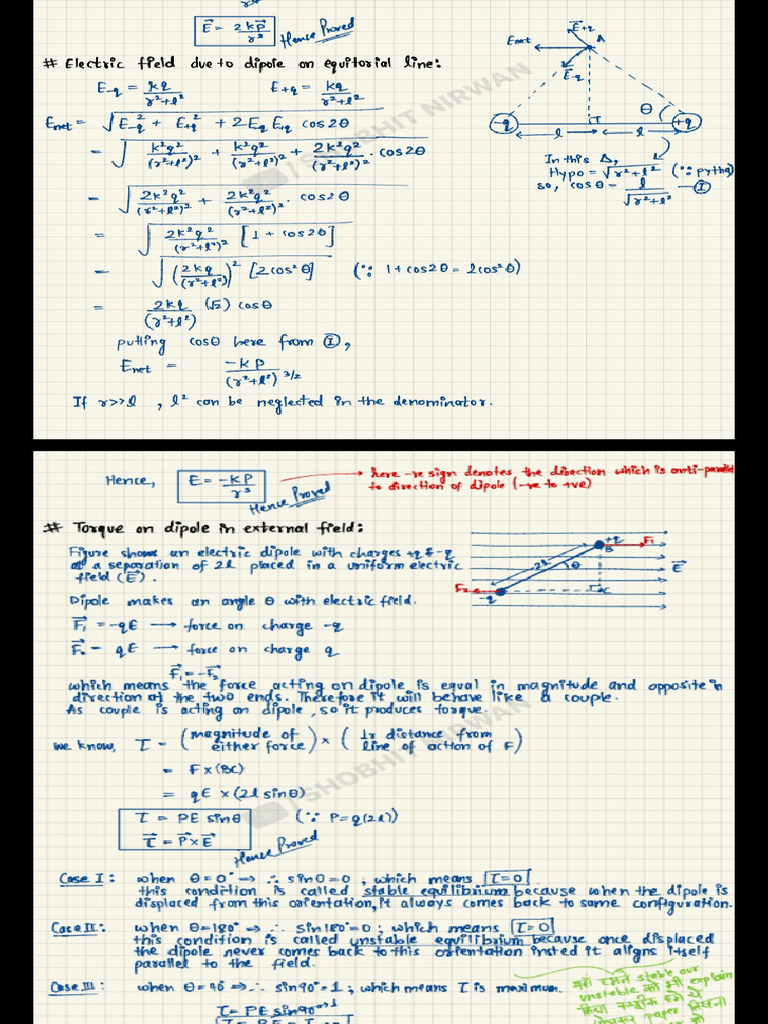 E⃗ = 2kP⃗/r³ Hence Proved
# Electric field due to dipole on equitorial line:
E₋q = kq/(r²+l²) E₊q = kq/(r²+l²)
Enet = √(E₋q² + E₊q² + 2Eq E₊q cos2θ)
= √(k²q²/(r²+l²)² + k²q²/(r²+l²)² + 2k²q²/(r²+l²)² . cos2θ)
= √(2k²q²/(r²+l²)² + 2k²q²/(r²+l²)² . cos2θ)
= √(2k²q²/(r²+l²)² [1 + cos2θ])
= √((2kq/(r²+l²))² [2cos²θ]) (∵ 1+cos2θ = 2cos²θ)
= 2kq/(r²+l²) (√2) cosθ
putting cosθ here from Ⓘ,
Enet = -kP/(r²+l²)^3/2
If r>>l , l² can be neglected in the denominator.
Enet E⃗+q A
E⃗-q
-q l T l θ +q
In this Δ,
Hypo = √(r²+l²) (∵ pytha)
so, cosθ = l/√(r²+l²) —Ⓘ
SHOBHIT NIRWAN
Hence, E = -kP/r³ Hence Proved
here -ve sign denotes the direction which is anti-parallel
to direction of dipole (-ve to +ve)
# Torque on dipole in external field:
Figure shows an electric dipole with charges +q & -q
at a separation of 2l placed in a uniform electric
field (E⃗).
Dipole makes an angle θ with electric field.
F⃗₁ = -qE → force on charge -q
F⃗₂ = qE → force on charge q
F⃗₁ = -F⃗₂
which means the force acting on dipole is equal in magnitude and opposite in
direction at the two ends. Therefore it will behave like a couple.
As couple is acting on dipole, so it produces torque.
+q B F₁
2l θ E⃗
F₂ -q C
we know, τ = (magnitude of either force) × (⊥r distance from line of action of F)
= F × (BC)
= qE × (2l sinθ)
τ = PE sinθ (∵ P = q(2l))
τ⃗ = P⃗×E⃗
Hence Proved
SHOBHIT NIRWAN
Case I: when θ=0° → ∴ sin0=0 ; which means τ=0.
this condition is called stable equilibrium because when the dipole is
displaced from this orientation, it always comes back to same configuration.
Case II: when θ=180° → ∴ sin180°=0 ; which means τ=0
this condition is called unstable equilibrium because once displaced
the dipole never comes back to this orientation insted it aligns itself
parallel to the field.
Case III: when θ=90° → ∴ sin90°=1 ; which means τ is maximum.
τ = PE sin90° 1
τ = PE
यहां हमने stable aur
unstable को भी explain
किया
paper